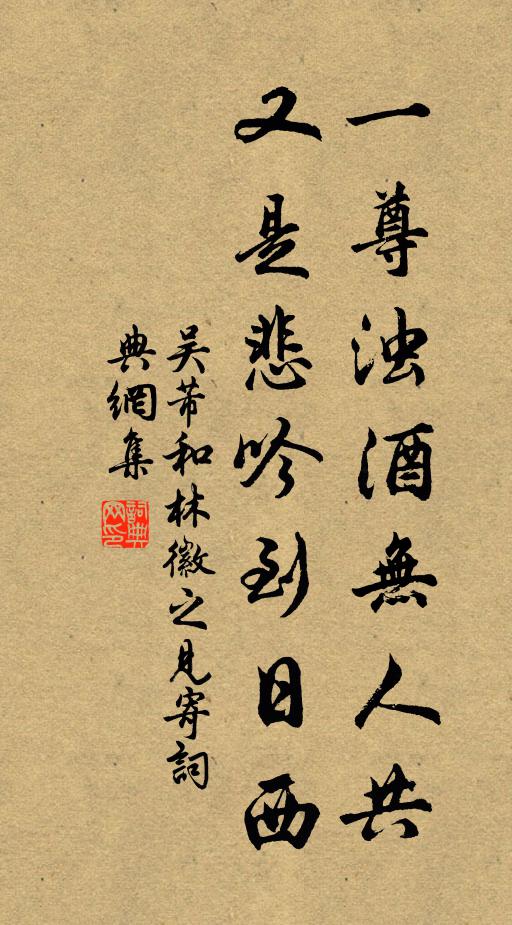 一尊浊酒無人共
又是悲吟到日西
吴芾和林徽之見寄詞
典網集
詞典
网印